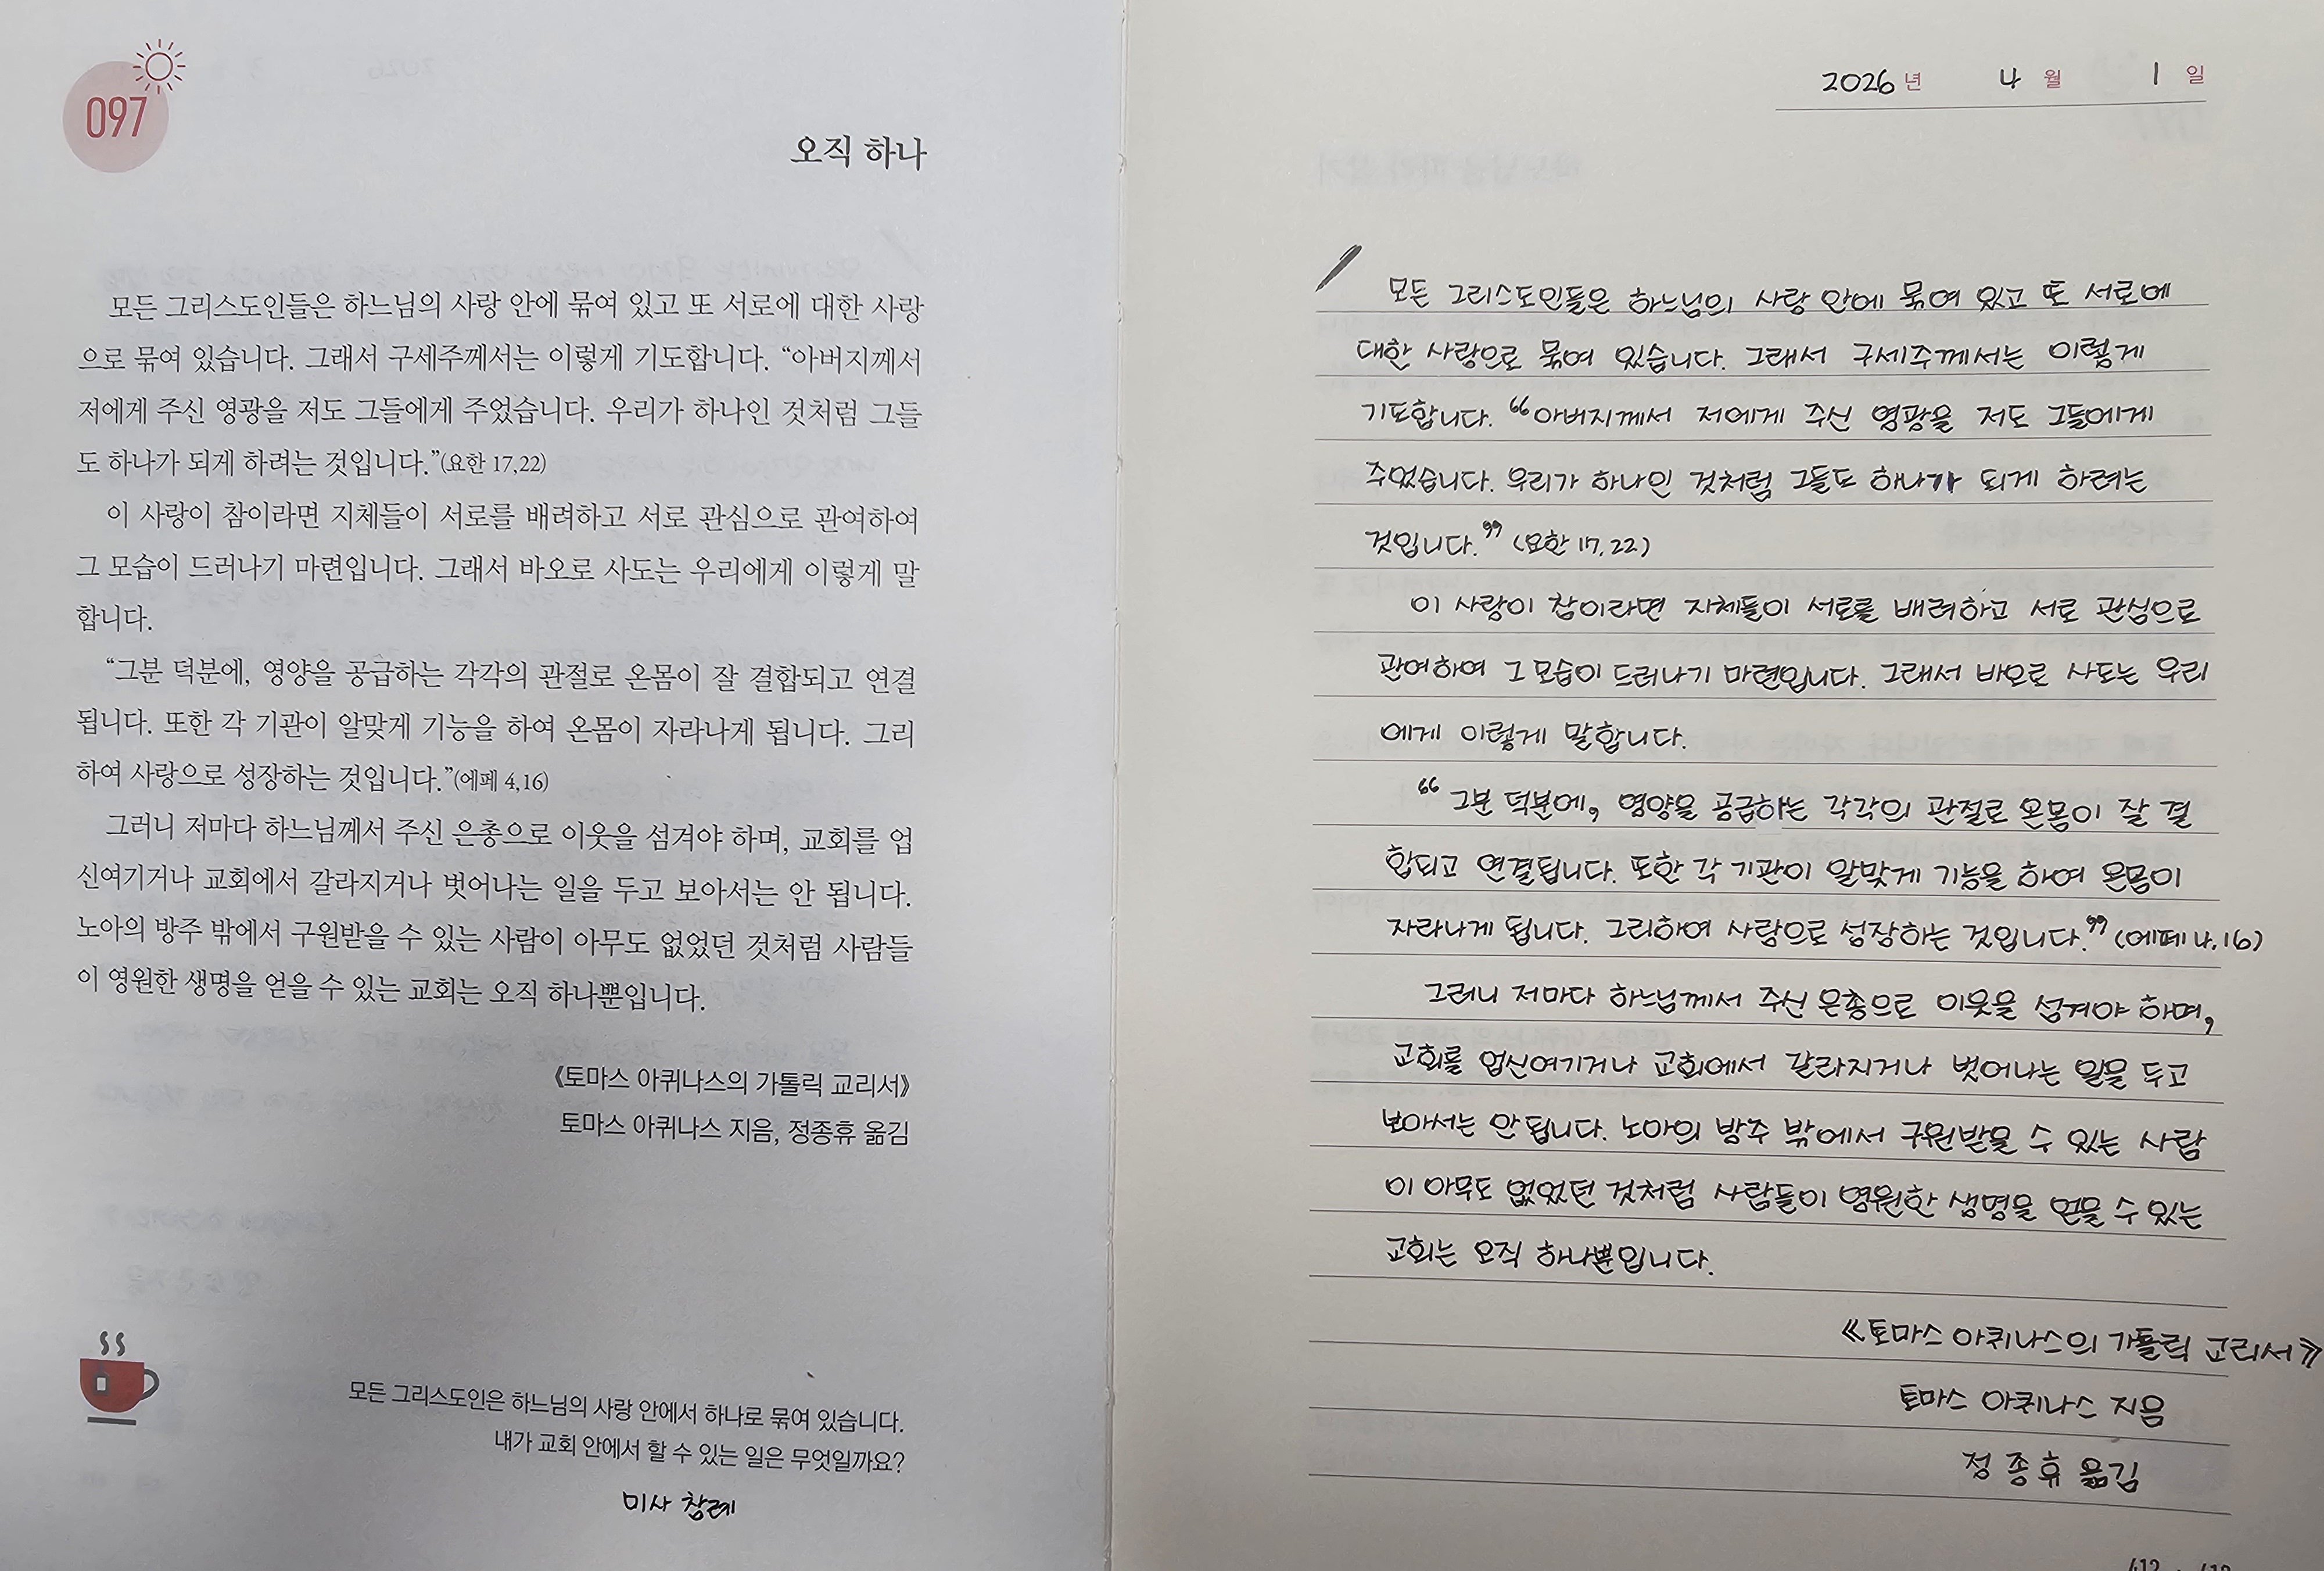 097
오직 하나
모든 그리스도인들은 하느님의 사랑 안에 묶여 있고 또 서로에 대한 사랑
으로 묶여 있습니다. 그래서 구세주께서는 이렇게 기도합니다. “아버지께서
저에게 주신 영광을 저도 그들에게 주었습니다. 우리가 하나인 것처럼 그들
도 하나가 되게 하려는 것입니다.”(요한 17,22)
이 사랑이 참이라면 지체들이 서로를 배려하고 서로 관심으로 관여하여
그 모습이 드러나기 마련입니다. 그래서 바오로 사도는 우리에게 이렇게 말
합니다.
“그분 덕분에, 영양을 공급하는 각각의 관절로 온몸이 잘 결합되고 연결
됩니다. 또한 각 기관이 알맞게 기능을 하여 온몸이 자라나게 됩니다. 그리
하여 사랑으로 성장하는 것입니다.”(에페 4,16)
그러니 저마다 하느님께서 주신 은총으로 이웃을 섬겨야 하며, 교회를 업
신여기거나 교회에서 갈라지거나 벗어나는 일을 두고 보아서는 안 됩니다.
노아의 방주 밖에서 구원받을 수 있는 사람이 아무도 없었던 것처럼 사람들
이 영원한 생명을 얻을 수 있는 교회는 오직 하나뿐입니다.
《토마스 아퀴나스의 가톨릭 교리서》
토마스 아퀴나스 지음, 정종휴 옮김
모든 그리스도인은 하느님의 사랑 안에서 하나로 묶여 있습니다.
내가 교회 안에서 할 수 있는 일은 무엇일까요?
미사 참례
2026년 4월 1일
모든 그리스도인들은 하느님의 사랑 안에 묶여 있고 또 서로에
대한 사랑으로 묶여 있습니다. 그래서 구세주께서는 이렇게
기도합니다. “아버지께서 저에게 주신 영광을 저도 그들에게
주었습니다. 우리가 하나인 것처럼 그들도 하나가 되게 하려는
것입니다.” (요한 17,22)
이 사랑이 참이라면 지체들이 서로를 배려하고 서로 관심으로
관여하여 그 모습이 드러나기 마련입니다. 그래서 바오로 사도는 우리
에게 이렇게 말합니다.
“그분 덕분에, 영양을 공급하는 각각의 관절로 온몸이 잘 결
합되고 연결됩니다. 또한 각 기관이 알맞게 기능을 하여 온몸이
자라나게 됩니다. 그리하여 사랑으로 성장하는 것입니다.” (에페 4,16)
그러니 저마다 하느님께서 주신 은총으로 이웃을 섬겨야 하며,
교회를 업신여기거나 교회에서 갈라지거나 벗어나는 일을 두고
보아서는 안 됩니다. 노아의 방주 밖에서 구원받을 수 있는 사람
이 아무도 없었던 것처럼 사람들이 영원한 생명을 얻을 수 있는
교회는 오직 하나뿐입니다.
《토마스 아퀴나스의 가톨릭 교리서》
토마스 아퀴나스 지음
정종휴 옮김